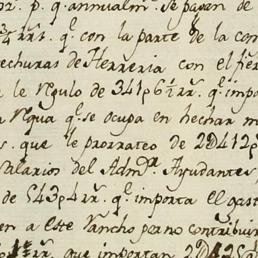 p. q.e annualm.te se pagan de
rr.s. q.e con la parte de la con
echuras de Herreria con el fier
a le regulo de 341p6½rr.s q.e impo
a Requa q.e se ocupa en hechar m
s. que le prorrateo de 2D412p
Salarios del Adm.or Ayudantes
de 543p4rr.s q.e importa el gast
en a este Rancho por no contribuir
rr.s que importan 2D425